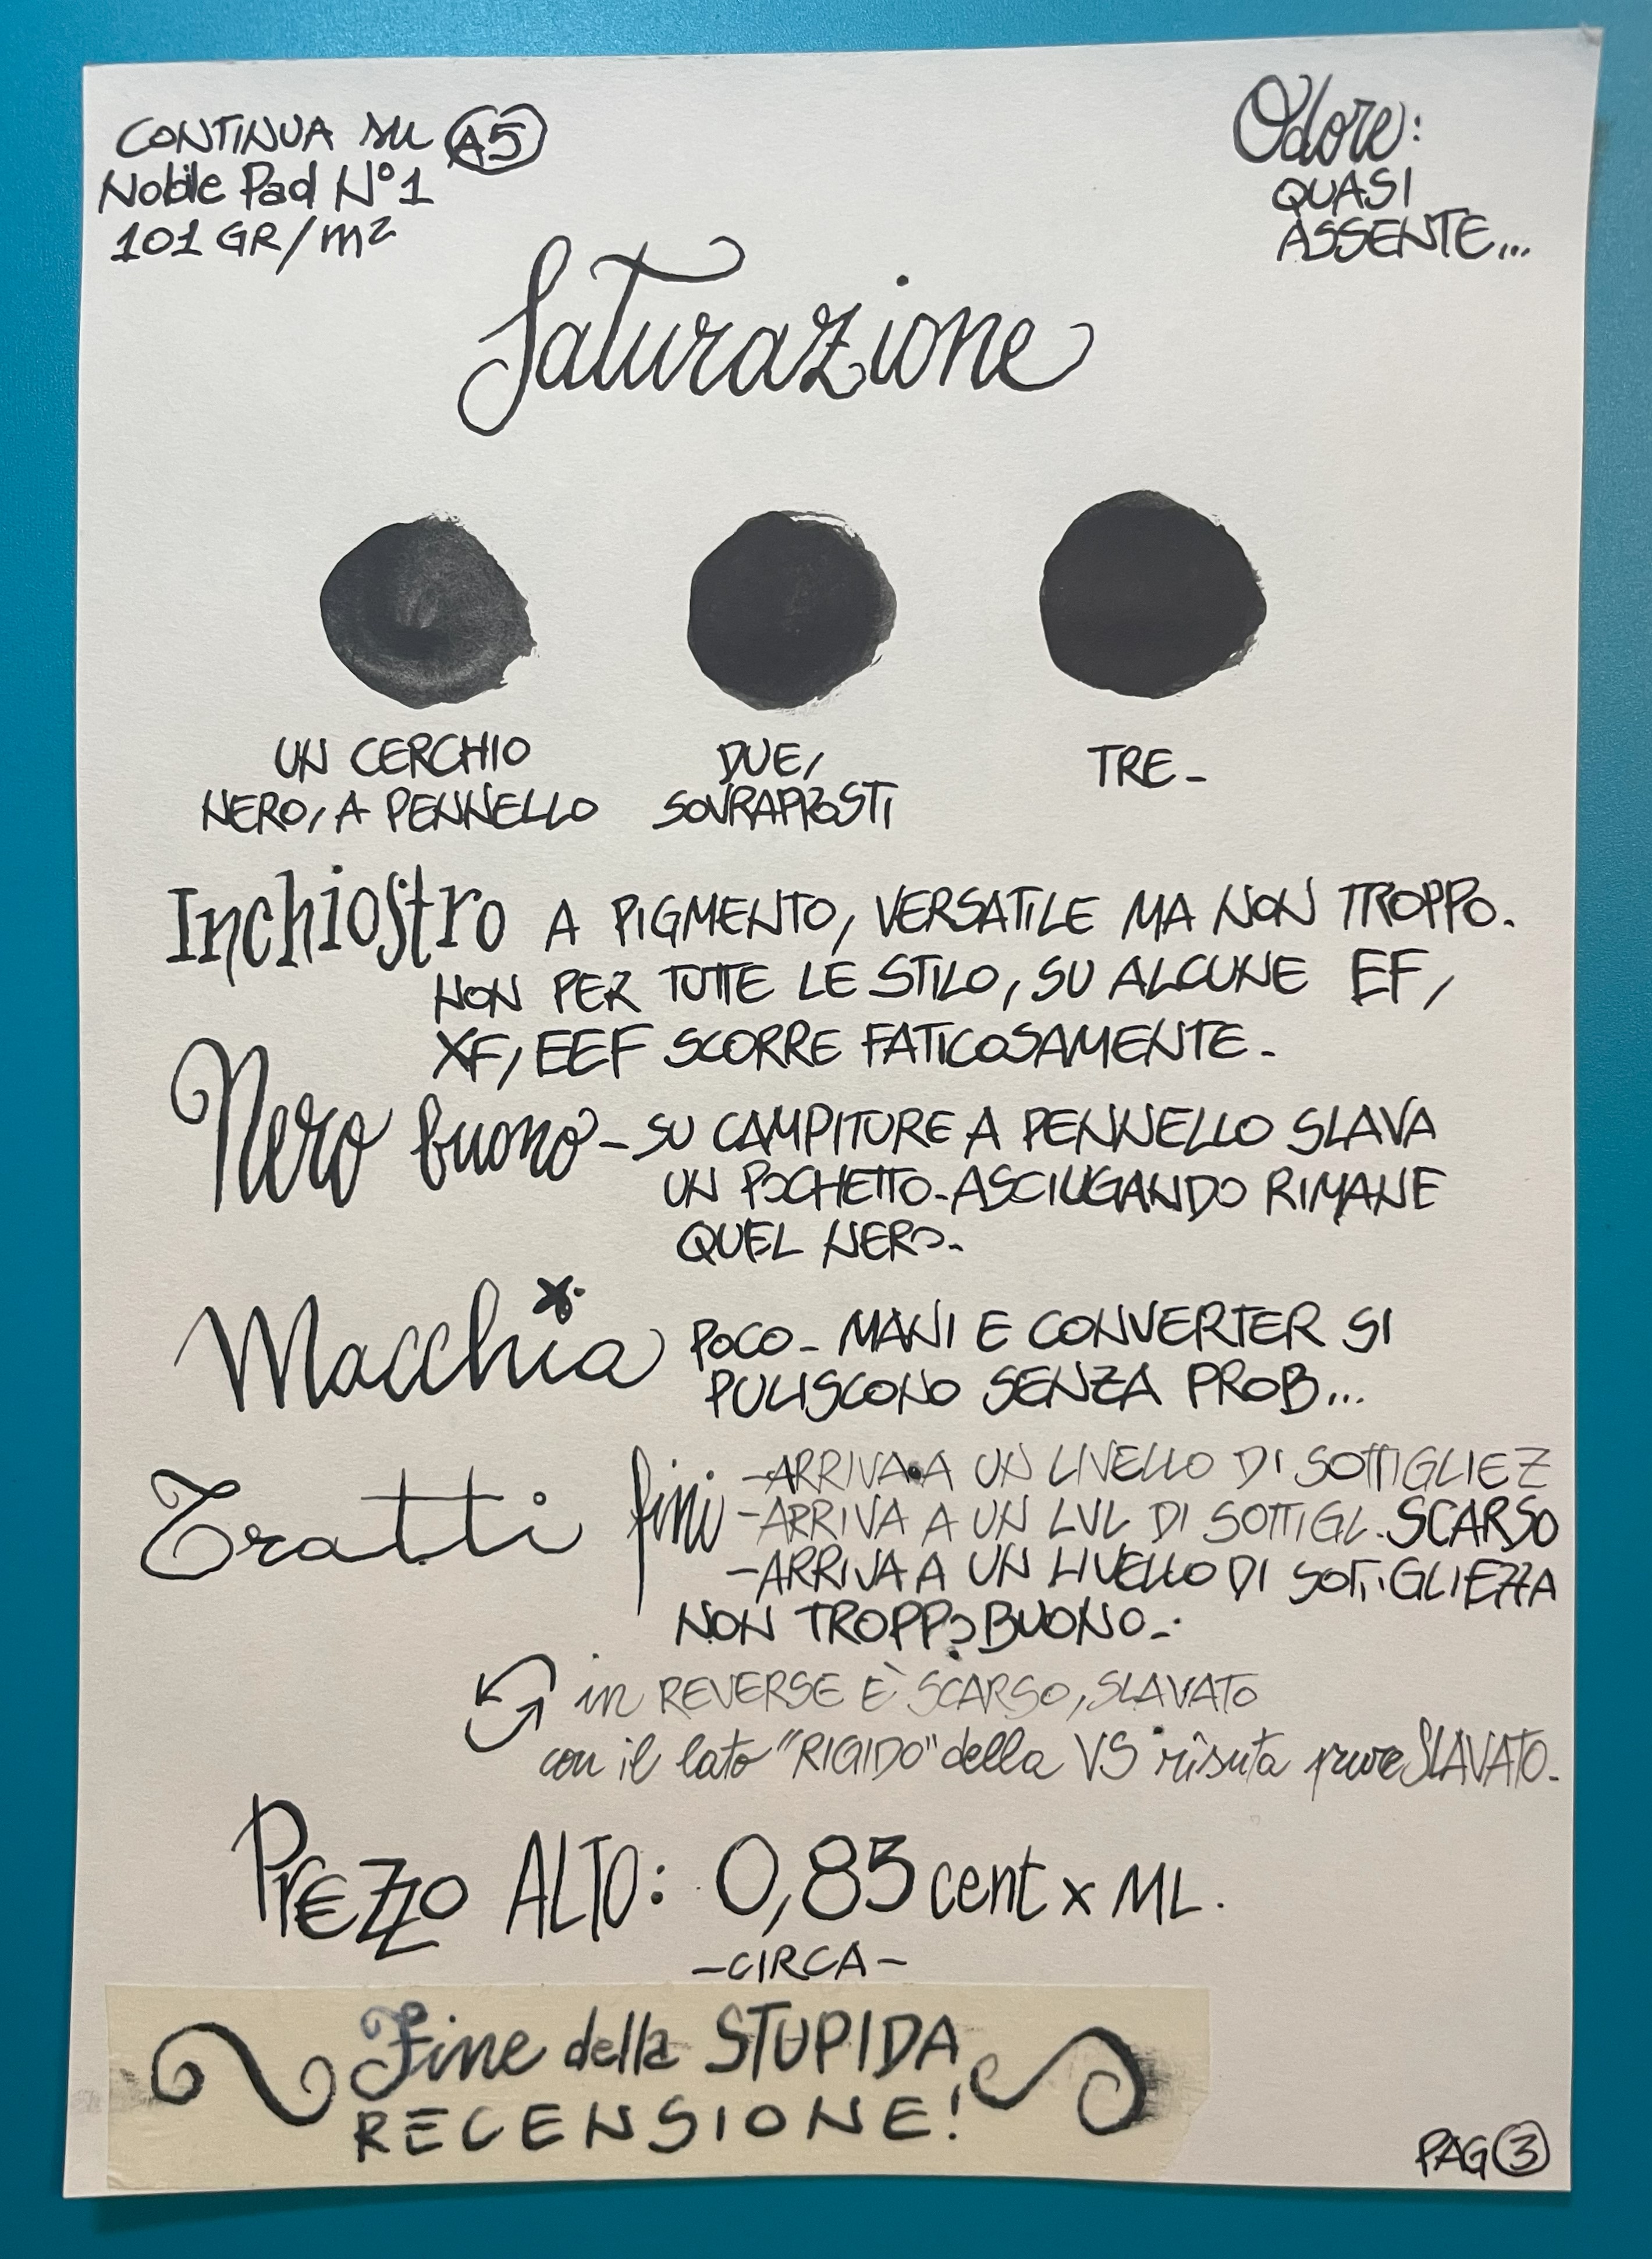 CONTINUA SU A5
Nobile Pad N°1
101 GR/m²
Odore:
QUASI
ASSENTE...
Saturazione
UN CERCHIO
NERO, A PENNELLO
DUE,
SOVRAPPOSTI
TRE-
Inchiostro A PIGMENTO, VERSATILE MA NON TROPPO.
NON PER TUTTE LE STILO, SU ALCUNE EF,
XF, EEF SCORRE FATICOSAMENTE-
Nero buono - SU CAMPITURE A PENNELLO SLAVA
UN POCHETTO-ASCIUGANDO RIMANE
QUEL NERO-
Macchia POCO- MANI E CONVERTER SI
PULISCONO SENZA PROB...
Tratti fini -ARRIVA A UN LIVELLO DI SOTTIGLIEZ
-ARRIVA A UN LVL DI SOTTIGL. SCARSO
-ARRIVA A UN LIVELLO DI SOTTIGLIEZZA
NON TROPPO BUONO-.
in REVERSE È SCARSO, SLAVATO
con il lato "RIGIDO" della VS risuta pure SLAVATO-
PREZZO ALTO: 0,85 cent x ML.
-CIRCA-
Fine della STUPIDA
RECENSIONE!
PAG 3